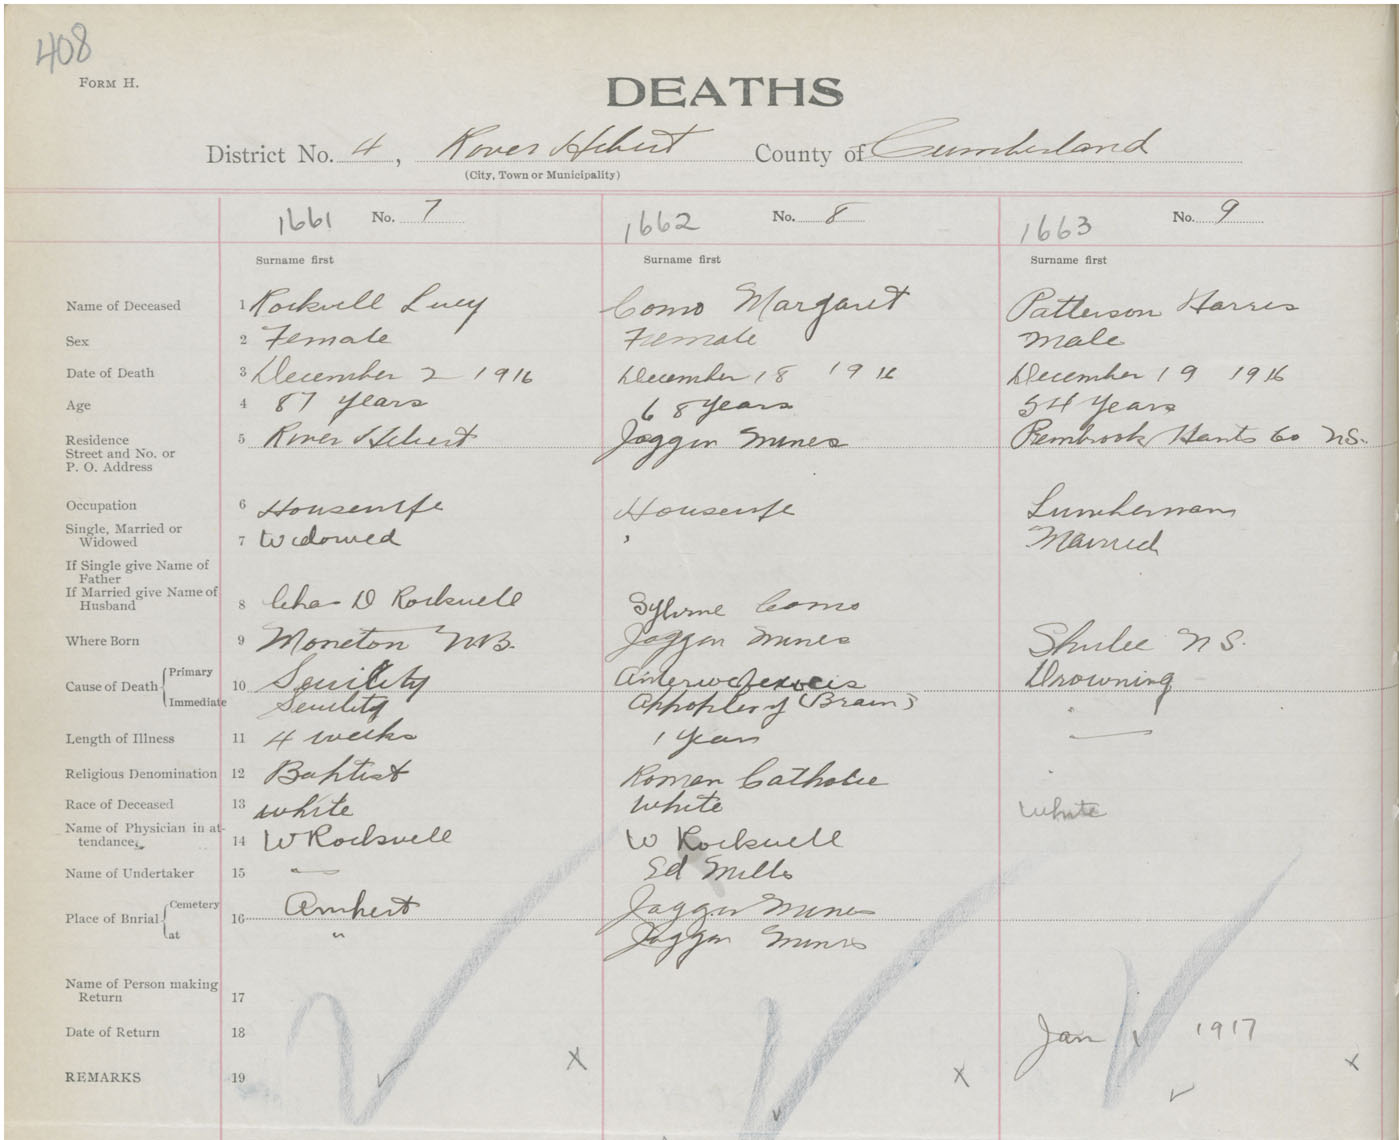 408
FORM H.
DEATHS
District No. 4, River Hebert County of Cumberland
(City, Town or Municipality)
1661 No. 7 1662 No. 8 1663 No. 9
Surname first Surname first Surname first
Name of Deceased 1 Rockwell Lucy Como Margaret Patterson Harris
Sex 2 Female Female Male
Date of Death 3 December 2 1916 December 18 1916 December 19 1916
Age 4 87 years 68 years 54 years
Residence 5 River Hebert Joggin Mines Pembrook Hants Co NS.
Street and No. or
P. O. Address
Occupation 6 Housewife Housewife Lumberman
Single, Married or
Widowed 7 Widowed Married
If Single give Name of
Father
If Married give Name of
Husband 8 Chas D Rockwell Como
Where Born 9 Moncton N.B. Joggin Mines Shulee N S.
Cause of Death { Primary 10 Senility Drowning
Immediate Senility (Brain)
Length of Illness 11 4 weeks 1 year
Religious Denomination 12 Baptist Roman Catholic
Race of Deceased 13 white white White
Name of Physician in at-
tendance, 14 W Rockwell W Rockwell
Name of Undertaker 15 — Ed Mills
Place of Burial { Cemetery 16 Amherst Joggin Mines
at " Joggin Mines
Name of Person making
Return 17
Date of Return 18 Jan 1 1917
REMARKS 19